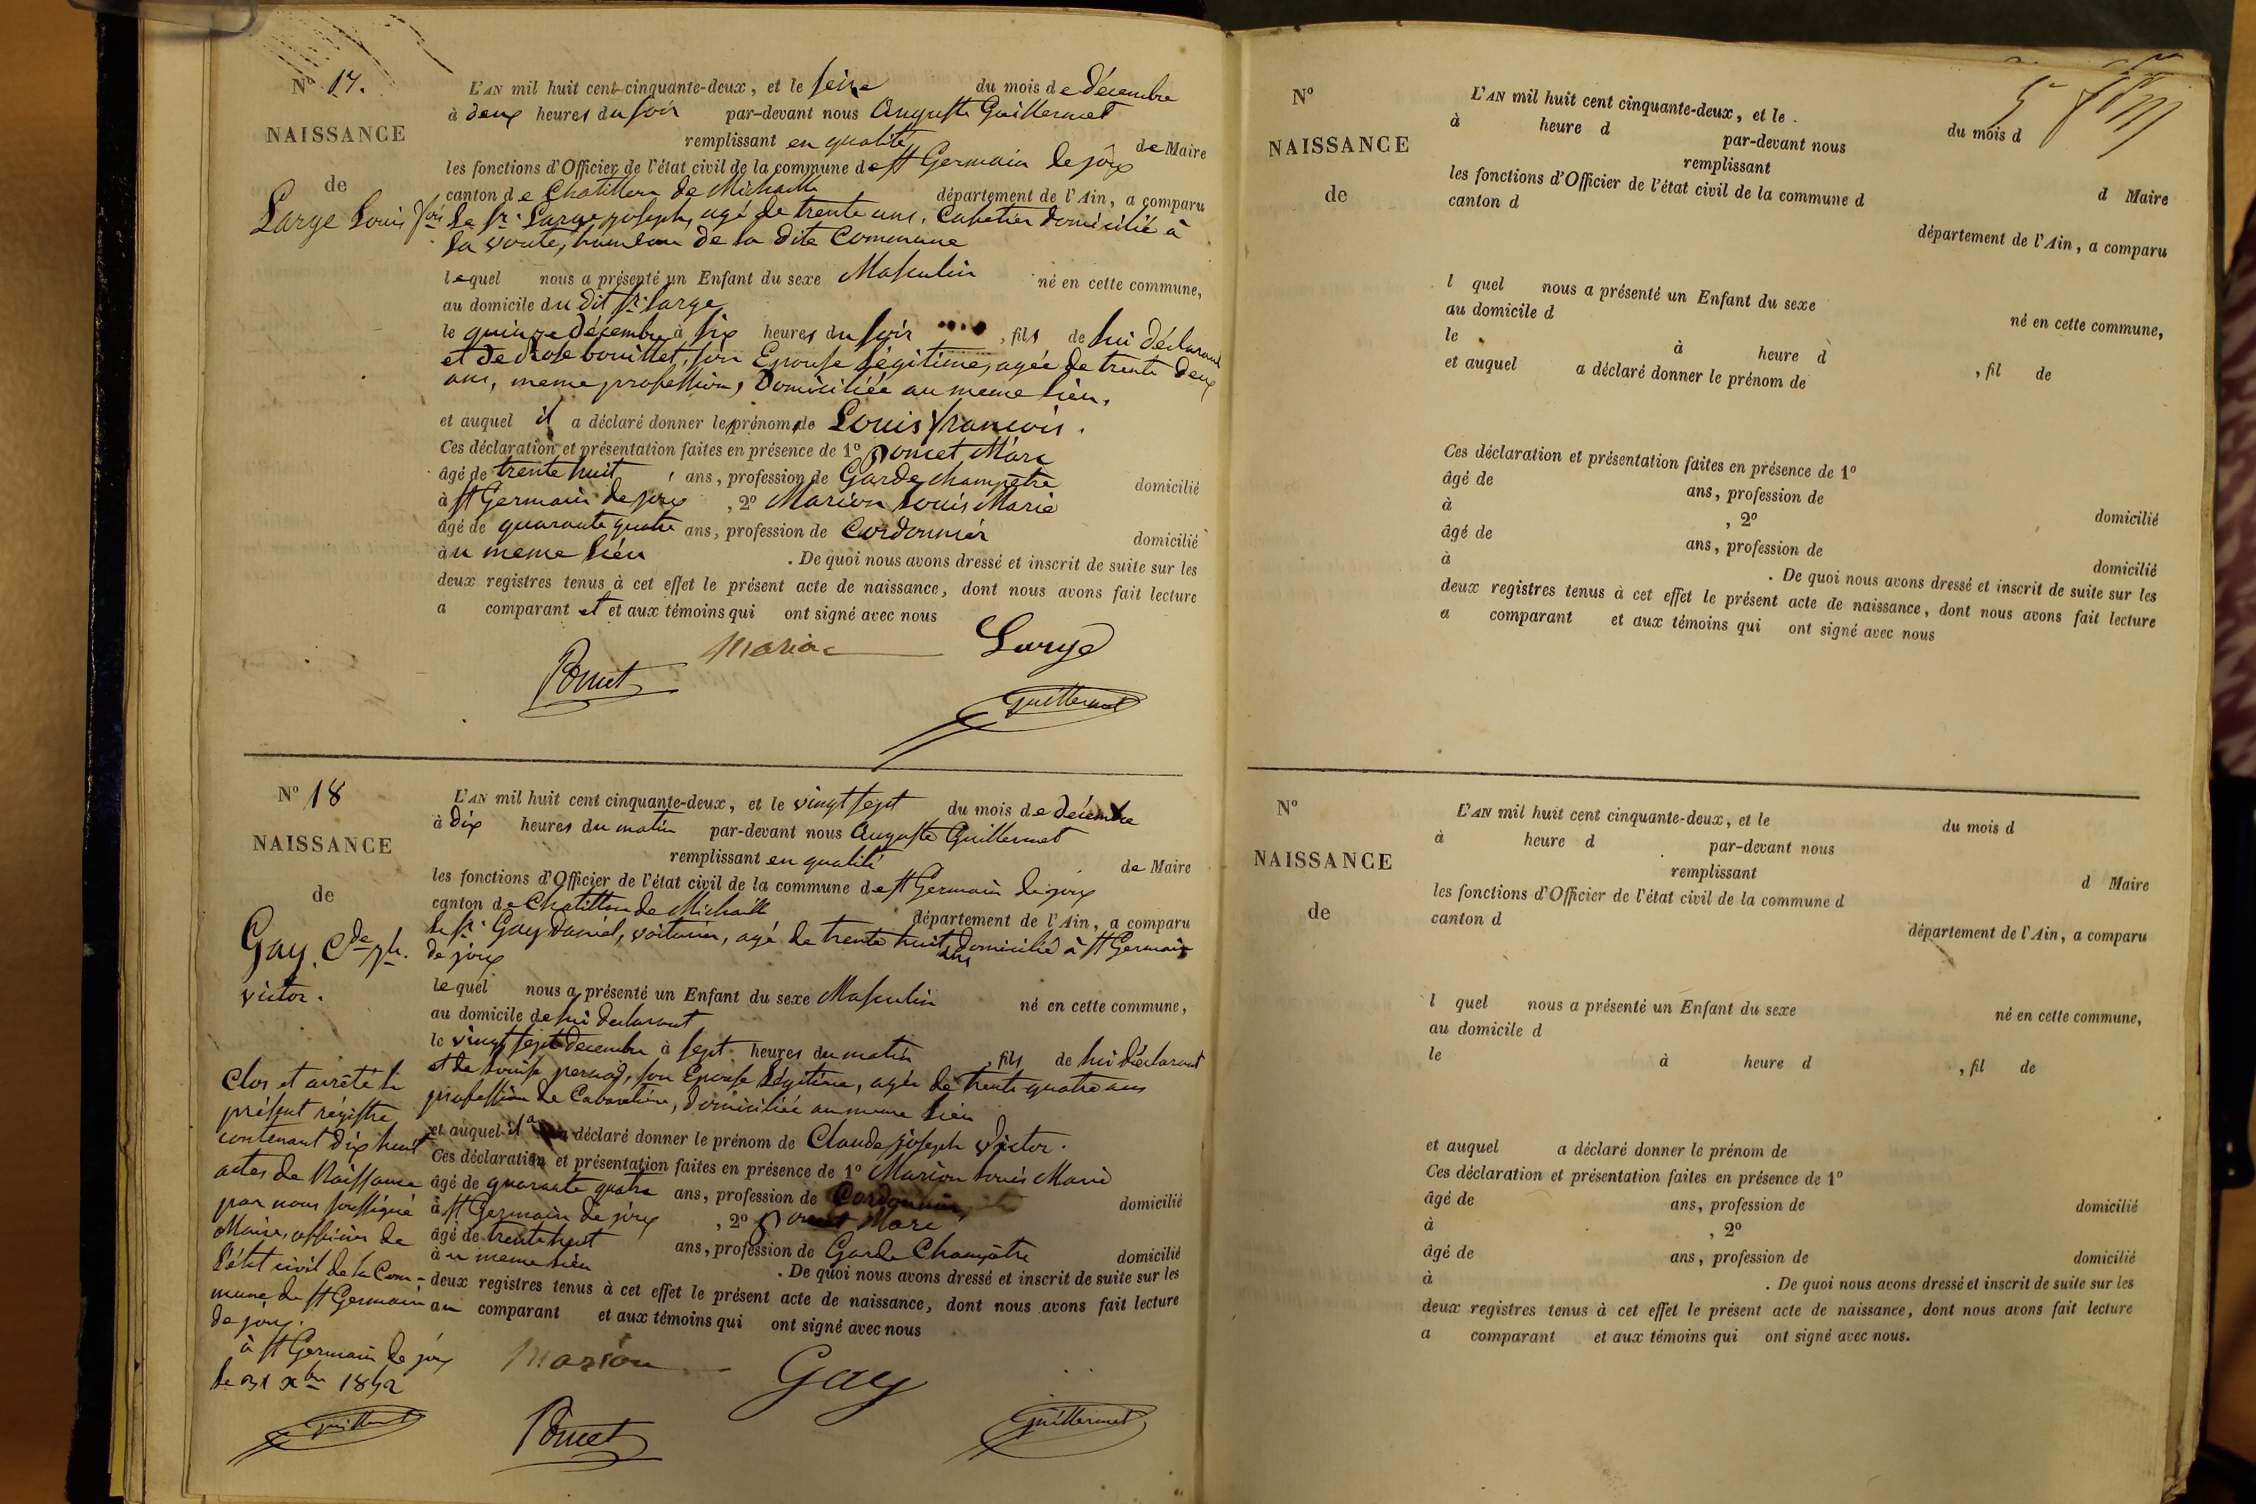 N° 17.
NAISSANCE
de
Large Louis fois
L'AN mil huit cent cinquante-deux, et le seize du mois de décembre
à deux heures du soir par-devant nous Auguste Guillermet
remplissant en qualité de Maire
les fonctions d'Officier de l'état civil de la commune de St Germain de joux
canton de Chatillon de Michaille département de l'Ain, a comparu
le Sr. Large joseph, agé de trente ans, Cabetier domicilié à
la voute, hameau de la dite Commune
lequel nous a présenté un Enfant du sexe Masculin né en cette commune,
au domicile du dit Sr Large
le quinze décembre à six heures du soir , fils de lui déclarant
et de Rose bouillet, son Epouse légitime, agée de trente deux
ans, meme profession, Domiciliée au meme lieu,
et auquel il a déclaré donner le prénom de Louis françois.
Ces déclaration et présentation faites en présence de 1° Poncet Marc
âgé de trente huit ans, profession de Garde champêtre domicilié
à St Germain de joux , 2° Marion Louis Marie
âgé de quarante quatre ans, profession de Cordonnier domicilié
au meme lieu . De quoi nous avons dressé et inscrit de suite sur les
deux registres tenus à cet effet le présent acte de naissance, dont nous avons fait lecture
a comparant et et aux témoins qui ont signé avec nous
Marion Large
Poncet
Guillermet
N° 18
NAISSANCE
de
Gay, Cde jh.
victor.
L'AN mil huit cent cinquante-deux, et le vingt sept du mois de décembre
à dix heures du matin par-devant nous Auguste Guillermet
remplissant en qualité de Maire
les fonctions d'Officier de l'état civil de la commune de St Germain de joux
canton de Chatillon de Michaille département de l'Ain, a comparu
le Sr. Gay Daniel, voiturier, agé de trente huit ans domicilié à St Germain
de joux
lequel nous a présenté un Enfant du sexe Masculin né en cette commune,
au domicile de lui declarant
le vingt sept decembre à sept heures du matin , fils de lui déclarant
et de Louise pernod, son Epouse légitime, agée de trente quatre ans
profession de Cabaretière, domiciliée au meme lieu
et auquel il a déclaré donner le prénom de Claude joseph Victor.
Ces déclaration et présentation faites en présence de 1° Marion Louis Marie
âgé de quarante quatre ans, profession de Cordonnier domicilié
à St Germain de joux , 2° Poncet Marc
âgé de trente huit ans, profession de Garde Champêtre domicilié
au meme lieu . De quoi nous avons dressé et inscrit de suite sur les
deux registres tenus à cet effet le présent acte de naissance, dont nous avons fait lecture
au comparant et aux témoins qui ont signé avec nous
Marion Gay
Poncet Guillermet
Clos et arrêté le
présent régistre
contenant dix huit
actes de Naissance
par nous soussigné
Maire, officier de
l'état civil de la Com-
mune de St Germain
de joux.
à St Germain de joux
le 31 xbre 1852
Guillermet
N°
NAISSANCE
de
L'AN mil huit cent cinquante-deux, et le . du mois d
à heure d par-devant nous
remplissant d Maire
les fonctions d'Officier de l'état civil de la commune d
canton d département de l'Ain, a comparu
l quel nous a présenté un Enfant du sexe né en cette commune,
au domicile d
le à heure d , fil de
et auquel a déclaré donner le prénom de
Ces déclaration et présentation faites en présence de 1°
âgé de ans, profession de domicilié
à , 2°
âgé de ans, profession de domicilié
à . De quoi nous avons dressé et inscrit de suite sur les
deux registres tenus à cet effet le présent acte de naissance, dont nous avons fait lecture
a comparant et aux témoins qui ont signé avec nous
N°
NAISSANCE
de
L'AN mil huit cent cinquante-deux, et le du mois d
à heure d par-devant nous
remplissant d Maire
les fonctions d'Officier de l'état civil de la commune d
canton d département de l'Ain, a comparu
l quel nous a présenté un Enfant du sexe né en cette commune,
au domicile d
le à heure d , fil de
et auquel a déclaré donner le prénom de
Ces déclaration et présentation faites en présence de 1°
âgé de ans, profession de domicilié
à , 2°
âgé de ans, profession de domicilié
à . De quoi nous avons dressé et inscrit de suite sur les
deux registres tenus à cet effet le présent acte de naissance, dont nous avons fait lecture
a comparant et aux témoins qui ont signé avec nous.